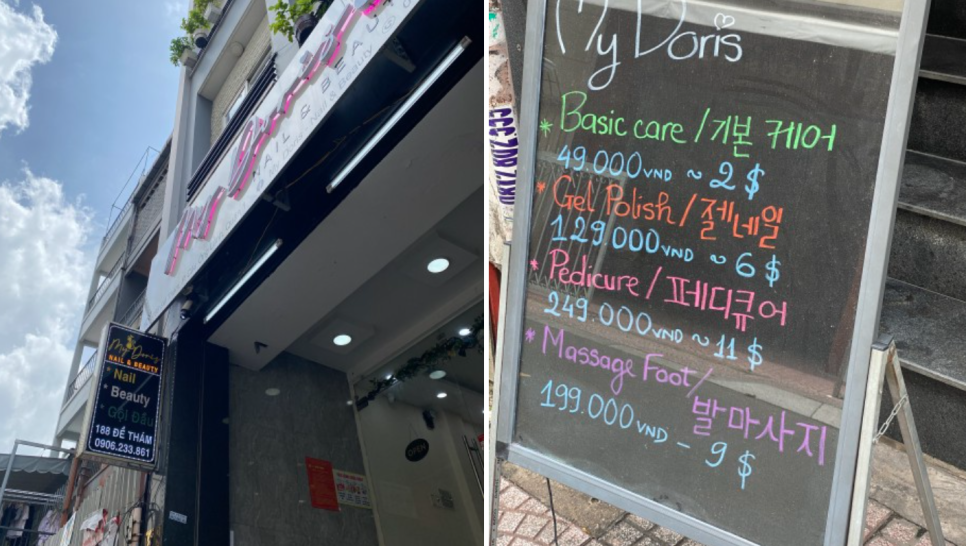 My Doris
NAIL & BEAUTY
My Doris
NAIL & BEAUTY
* Nail
Beauty
* Gội Đầu
188 ĐỀ THÁM
0906.233.861
OPEN
My Doris
* Basic care / 기본 케어
49.000 VND ~ 2 $
* Gel Polish / 젤네일
129.000 VND ~ 6 $
* Pedicure / 페디큐어
249.000 VND ~ 11 $
* Massage Foot /
발 마사지
199.000 VND - 9 $